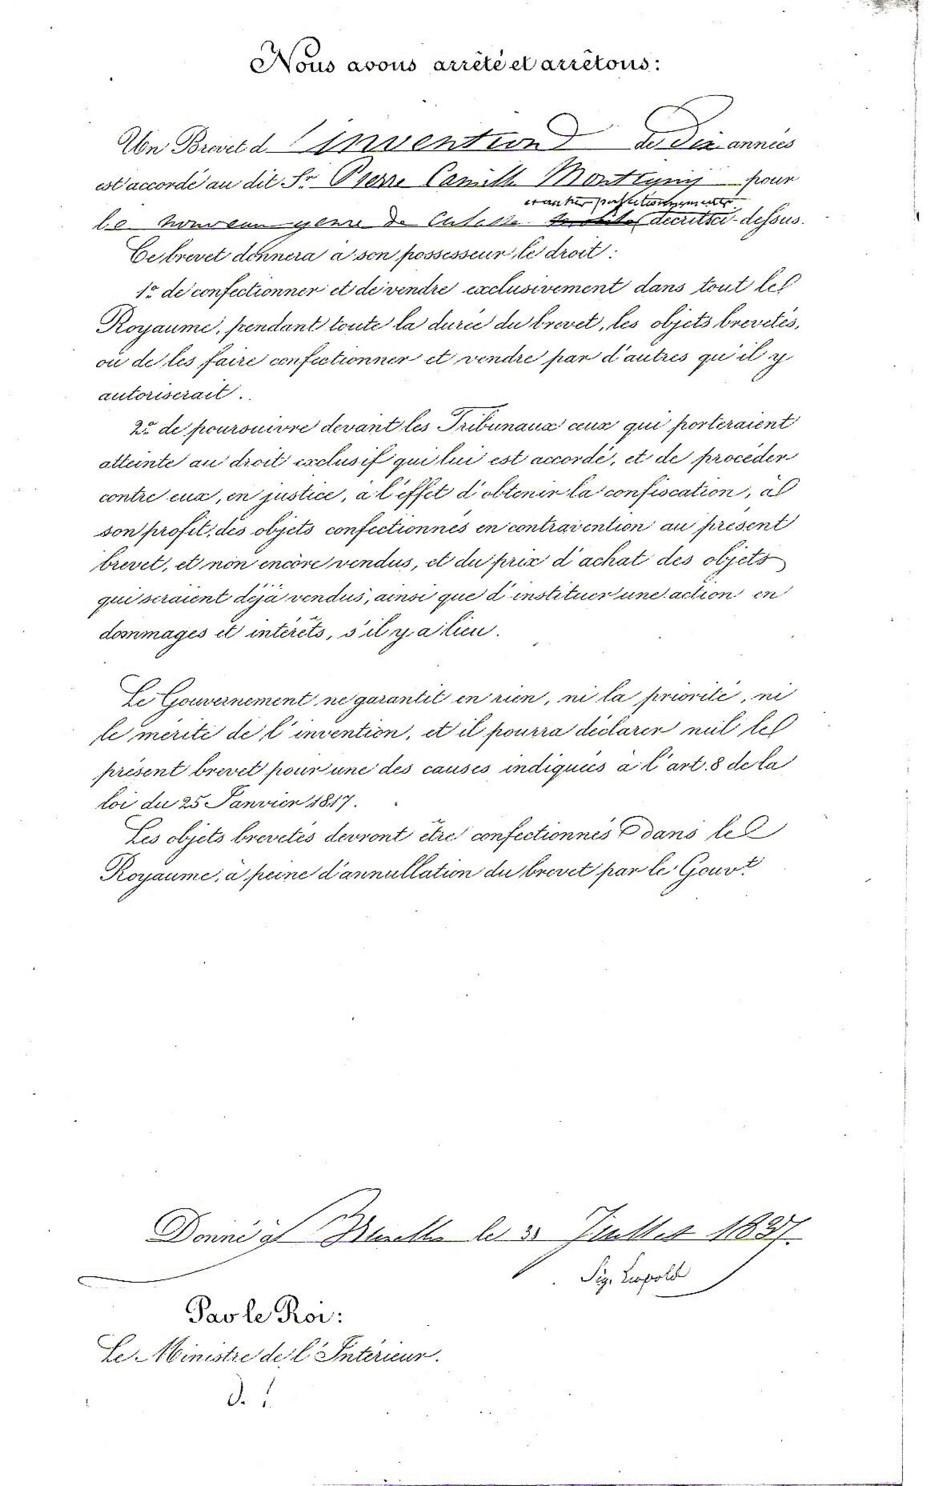 Nous avons arrêté et arrêtons:
Un Brevet d'invention de Dix années
est accordé au dit Sr. Pierre Camille Montigny pour
le nouveau genre de culasse décrits ci-dessus.
Ce brevet donnera à son possesseur le droit:
1º de confectionner et de vendre exclusivement dans tout le
Royaume, pendant toute la durée du brevet, les objets brevetés,
ou de les faire confectionner et vendre par d'autres qu'il y
autoriserait.
2º de poursuivre devant les Tribunaux ceux qui porteraient
atteinte au droit exclusif qui lui est accordé, et de procéder
contre eux, en justice, à l'effet d'obtenir la confiscation, à
son profit, des objets confectionnés en contravention au présent
brevet, et non encore vendus, et du prix d'achat des objets
qui seraient déjà vendus, ainsi que d'instituer une action en
dommages et intérêts, s'il y a lieu.
Le Gouvernement ne garantit en rien, ni la priorité, ni
le mérite de l'invention, et il pourra déclarer nul le
présent brevet pour une des causes indiquées à l'art. 8 de la
loi du 25 Janvier 1817.
Les objets brevetés devront être confectionnés dans le
Royaume, à peine d'annullation du brevet par le Gouvt.
Donné à Bruxelles le 31 Juillet 1837.
Sig. Léopold
Par le Roi:
Le Ministre de l'Intérieur.